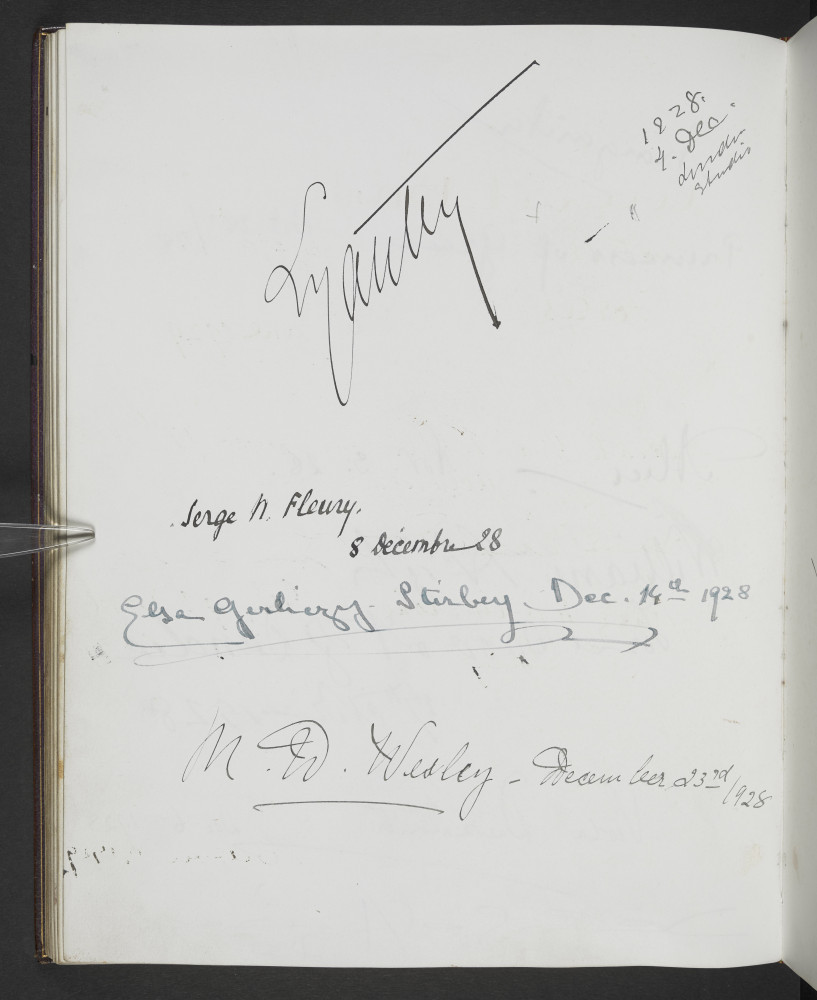 1928.
4. Dec.
Studio
Lyautey
Serge N. Fleury.
8 Décembre 28
Elsa Gerliczy - Stirbey. Dec. 14th 1928
M. D. Wesley - December 23rd/1928